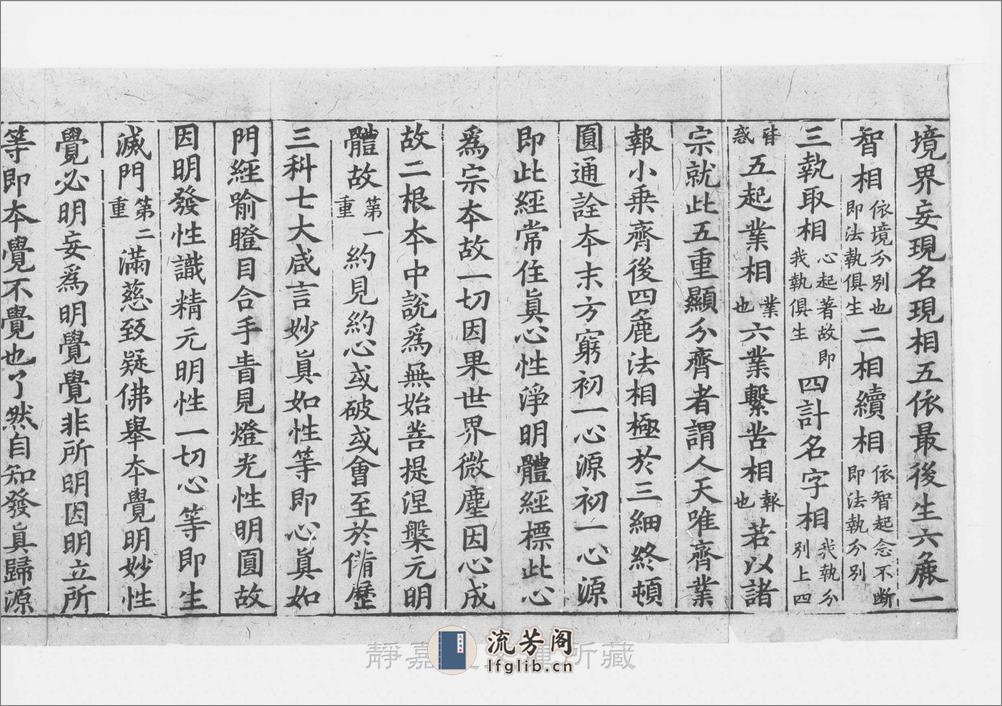 境界妄現名現相五依最後生六麁一
智相依境分別也即法執俱生二相續相依智起念不斷即法執分別
三執取相心起著故即我執俱生四計名字相我執分別上四
皆惑五起業相業也六業繫苦相報也若以諸
宗就此五重顯分齊者謂人天唯齊業
報小乗齊後四麁法相極於三細終頓
圓通詮本末方窮初一心源初一心源
即此經常住眞心性淨明體經標此心
爲宗本故一切因果世界微塵因心成
故二根本中說爲無始菩提涅槃元明
體故第一重約見約心或破或會至於俻歷
三科七大咸言妙眞如性等即心眞如
門經喻瞪目合手眚見燈光性明圓故
因明發性識精元明性一切心等即生
滅門第二重滿慈致疑佛舉本覺明妙性
覺必明妄爲明覺覺非所明因明立所
等即本覺不覺也了然自知發眞歸源
静嘉堂文庫所藏
流芳阁
lfglib.cn